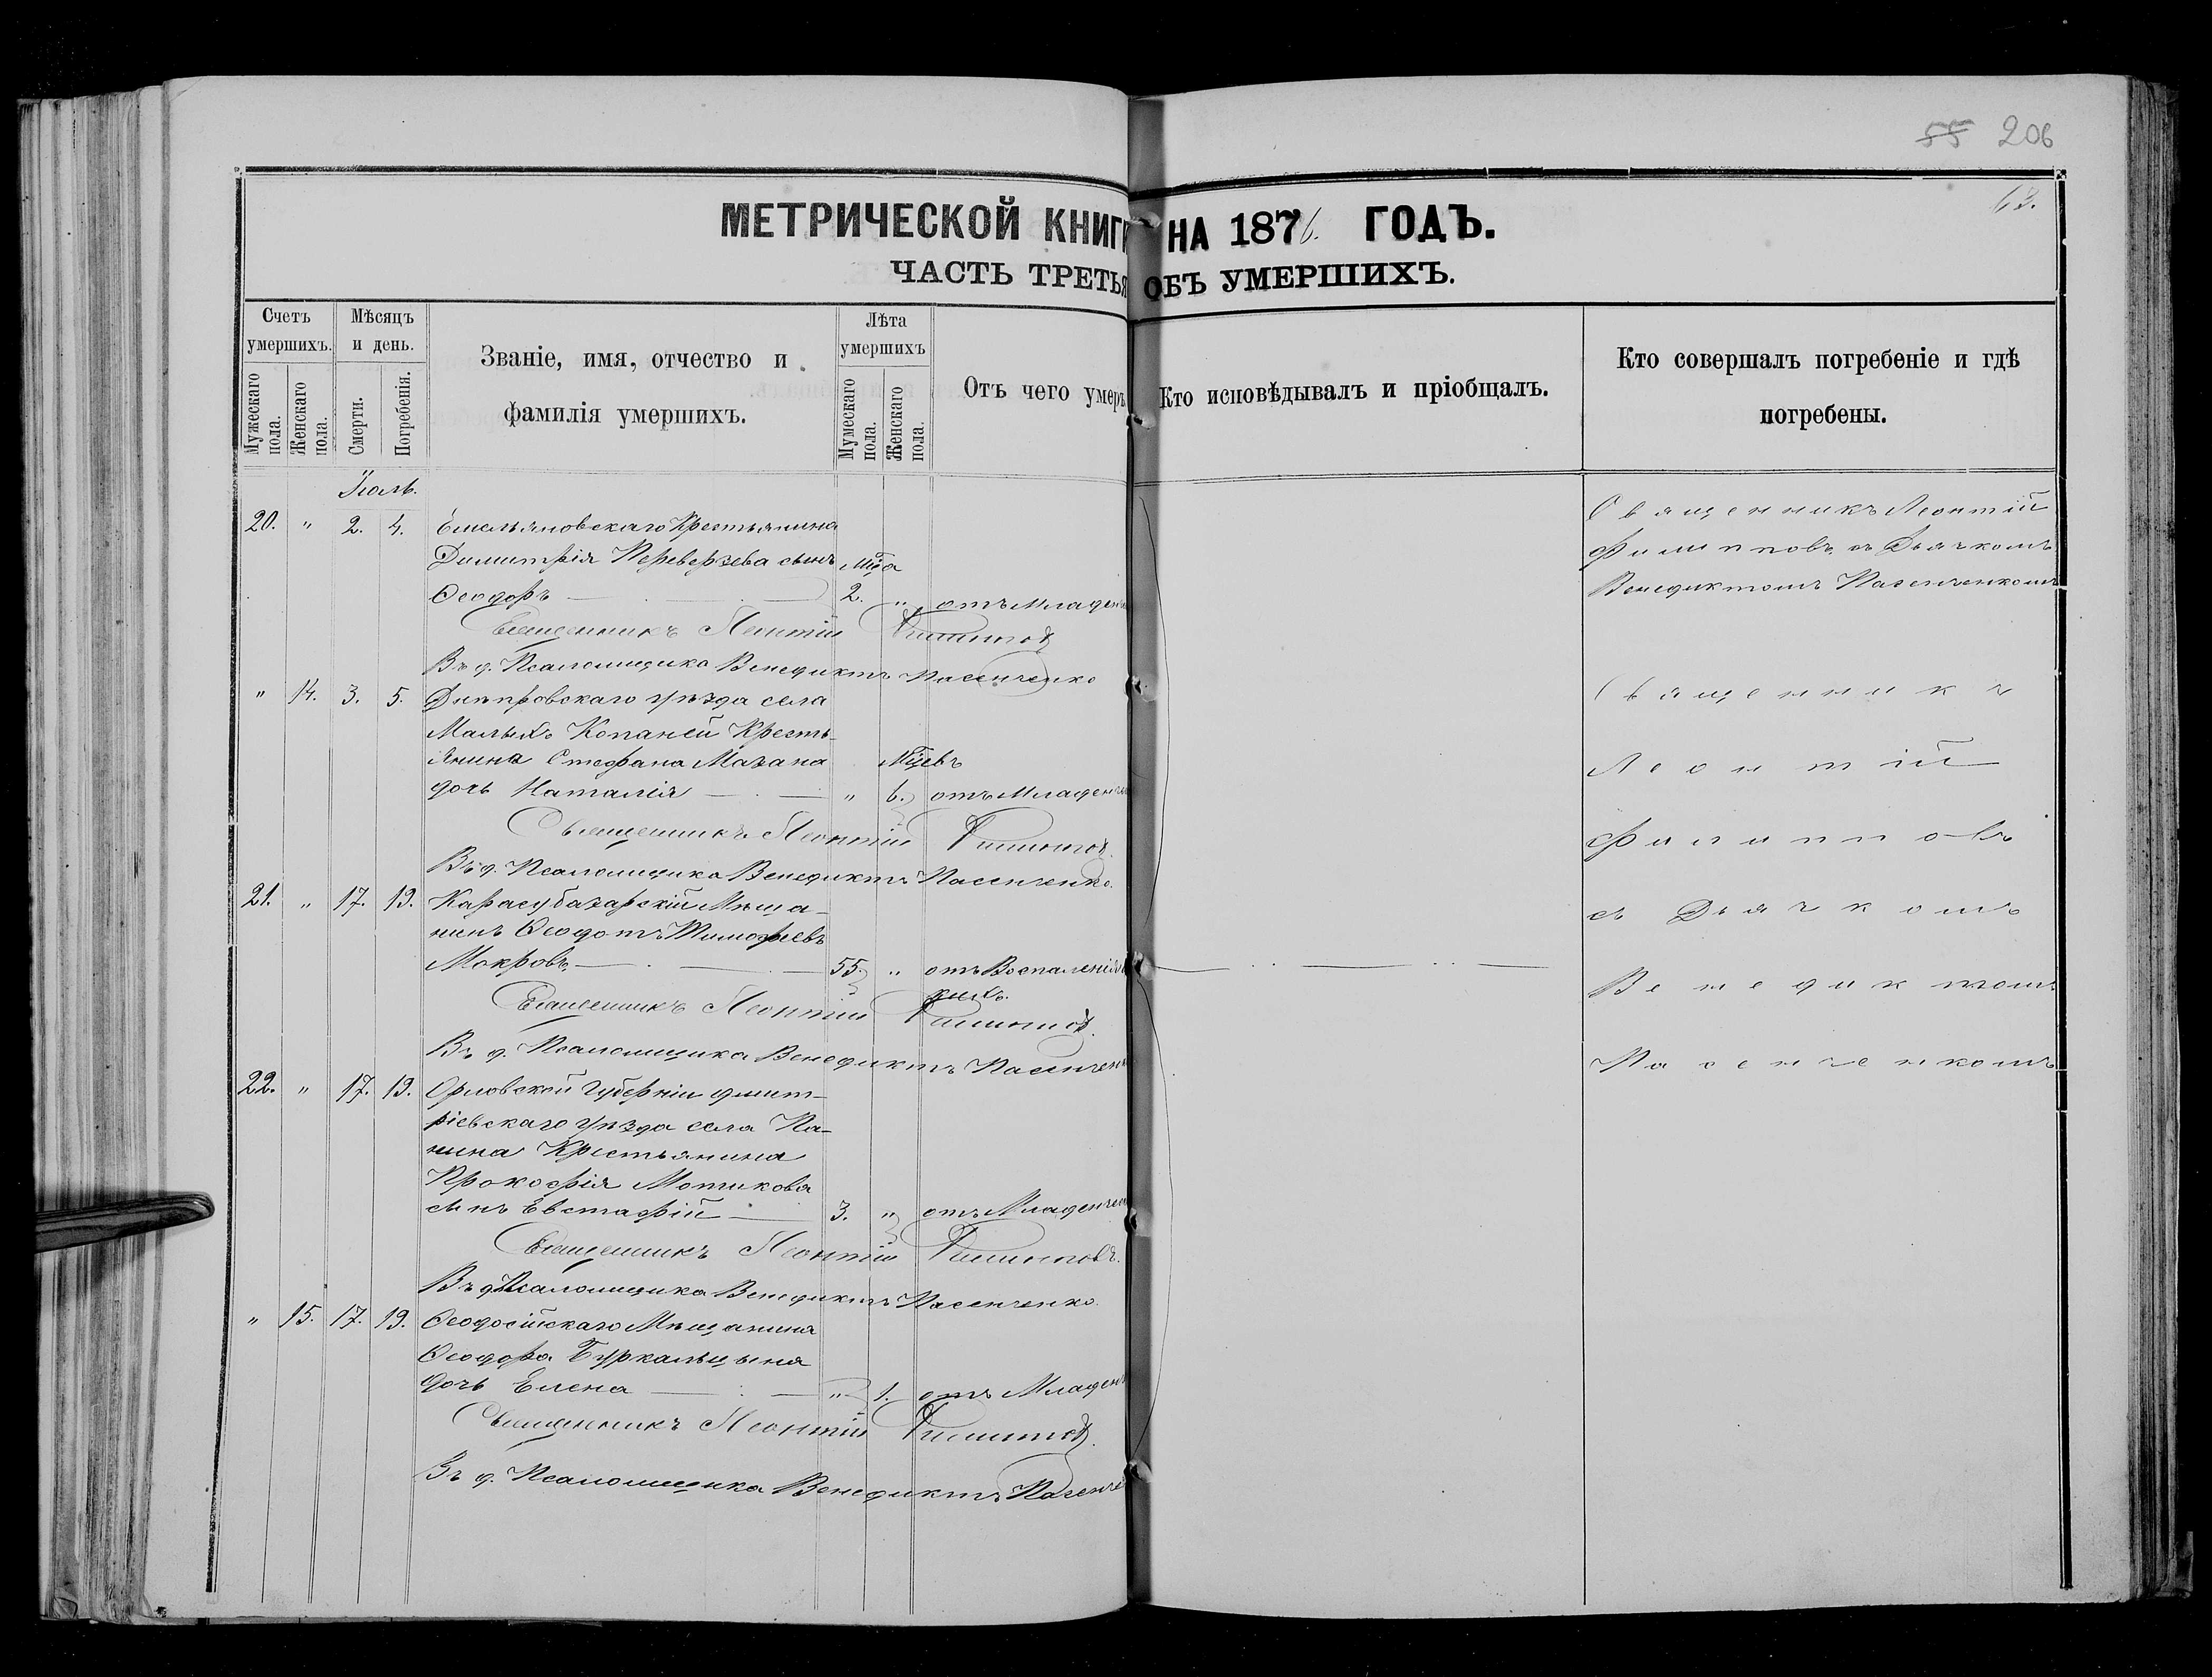 55 206
63.
МЕТРИЧЕСКОЙ КНИГИ НА 1876. ГОДЪ.
ЧАСТЬ ТРЕТЬЯ ОБЪ УМЕРШИХЪ.
Счетъ умершихъ.
Мужескаго пола.
Женскаго пола.
Мѣсяцъ и день.
Смерти.
Погребенія.
Званіе, имя, отчество и
фамилія умершихъ.
Лѣта умершихъ
Мужескаго пола.
Женскаго пола.
Отъ чего умеръ
Кто исповѣдывалъ и пріобщалъ.
Кто совершалъ погребеніе и гдѣ
погребены.
Іюль.
20. " 2. 4. Емельяновскаго Крестьянина
Димитрія Переверзева сынъ мца
Ѳеодоръ 2. " отъ Младен
Священникъ Леонтій Филиповъ
Въ д. Псаломщика Венедиктъ Пасенченко
Священникъ Леонтій
Филипповъ съ Дьячкомъ
Венедиктомъ Пасенченкомъ
" 14. 3. 5. Днѣпровскаго уѣзда села
Малыхъ Копаней Кресть-
янина Стефана Мазана мцевъ
дочь Наталія " 6. отъ Младенч
Священникъ Леонтій Филиповъ.
Въ д. Псаломщика Венедиктъ Пасенченко.
21. " 17. 19. Карасубазарскій Мѣща-
нинъ Ѳеодотъ Тимофеевъ
Мокровъ, 55. " отъ Воспаленія
Священникъ Леонтій Филиповъ.
Въ д. Псаломщика Венедиктъ Пасенченк
22. " 17. 19. Орловской Губерніи дмит-
ріевскаго уѣзда села Па-
нина Крестьянина
Прокофія Мотикова
сынъ Евстафій 3. " отъ Младенчес
Священникъ Леонтій Филиповъ.
Въ д. Псаломщика Венедиктъ Пасенченко.
" 15. 17. 19. Ѳеодосійскаго Мѣщанина
Ѳеодора Буркальцына
дочь Елена " 1. отъ Младен
Священникъ Леонтій Филиповъ.
Въ д. Псаломщика Венедиктъ Пасенче
Священникъ
Леонтій
Филипповъ
съ Дьячкомъ
Венедиктомъ
Пасенченкомъ